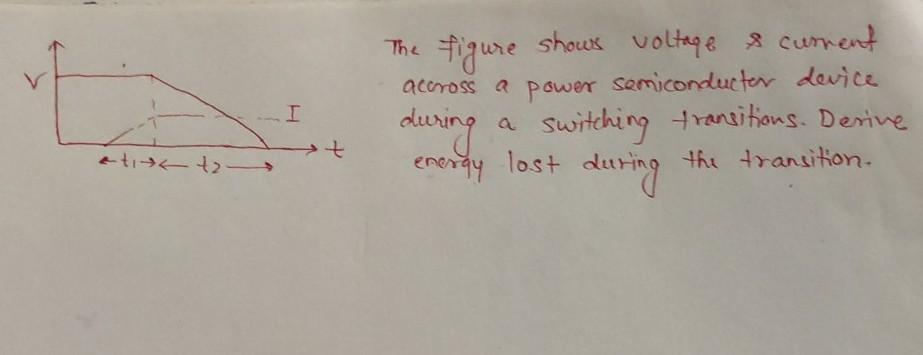 V
I
t
t1
t2
The figure shows voltage & current
accross a power semiconductor device
during a switching transitions. Derive
energy lost during the transition.